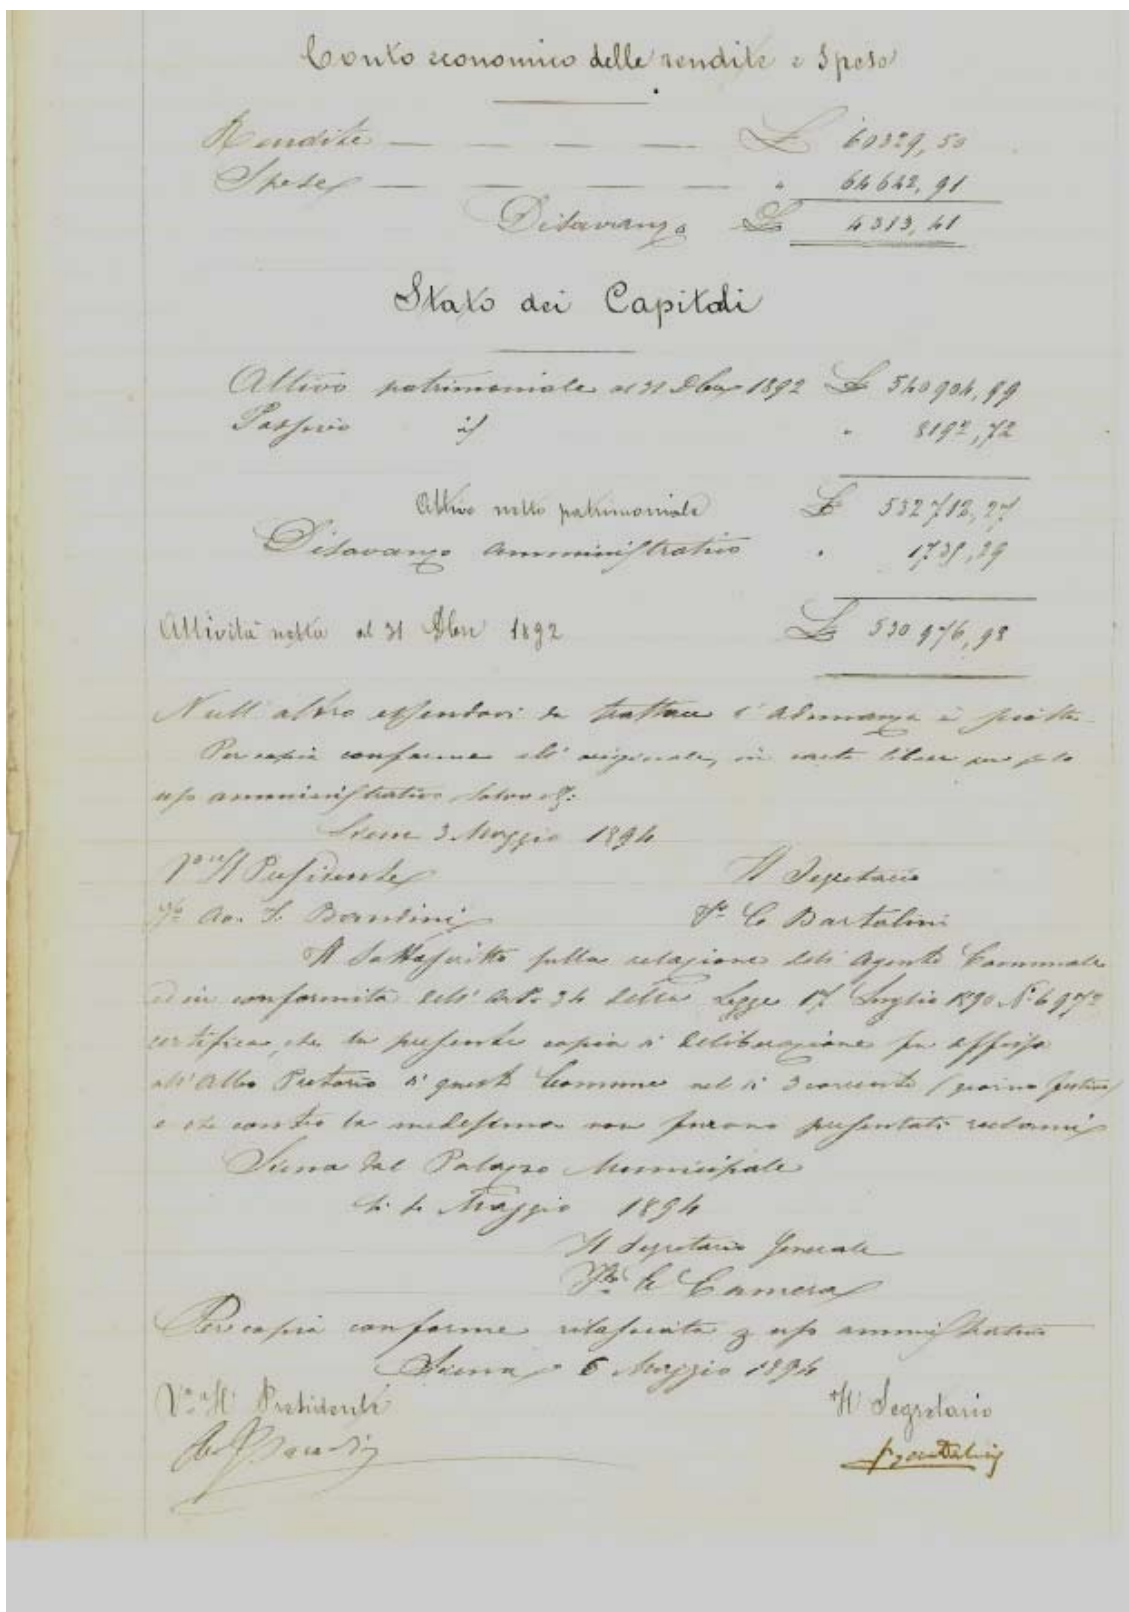 Conto economico delle rendite e Spese
Rendite — — — — £ 60329,50
Spese — — — — — " 64642,91
Disavanzo £ 4313,41
Stato dei Capitali
Attivo patrimoniale al 31 Dbre 1892 £ 540904,99
Passivo id " 8192,72
Attivo netto patrimoniale £ 532712,27
Disavanzo Amministrativo " 1735,29
Attività netta al 31 Dbre 1892 £ 530976,98
Null'altro essendovi da trattare l'adunanza è sciolta
Per copia conforme all'originale, in carta libera per solo
uso amministrativo salvo
Siena 3 Maggio 1894
Il Presidente Il Segretario
Fo Av. S. Bandini Fo C Bartalini
Il Sottoscritto sulla relazione dell'Agente Comunale
ed in conformità dell'Arto 34 della Legge 17 Luglio 1890 No 6972
certifica che la presente copia di deliberazione fu affissa
all'Albo Pretorio di questo Comune nel dì 3 corrente (giorno festivo)
e che contro la medesima non furono presentati reclami
Siena dal Palazzo Municipale
Maggio 1894
Il Segretario Generale
Camera
Per copia conforme rilasciata uso amministrativo
Siena 6 Maggio 1894
Il Presidente Il Segretario